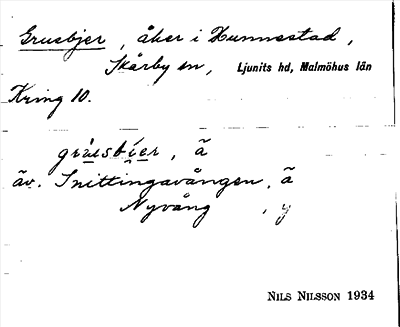 Gruebjer, åker i Hunnestad,
Skårby sn, Ljunits hd, Malmöhus län
Kring 10.
ä
äv. Snittingavången, ä
Nyvång, y
NILS NILSSON 1934